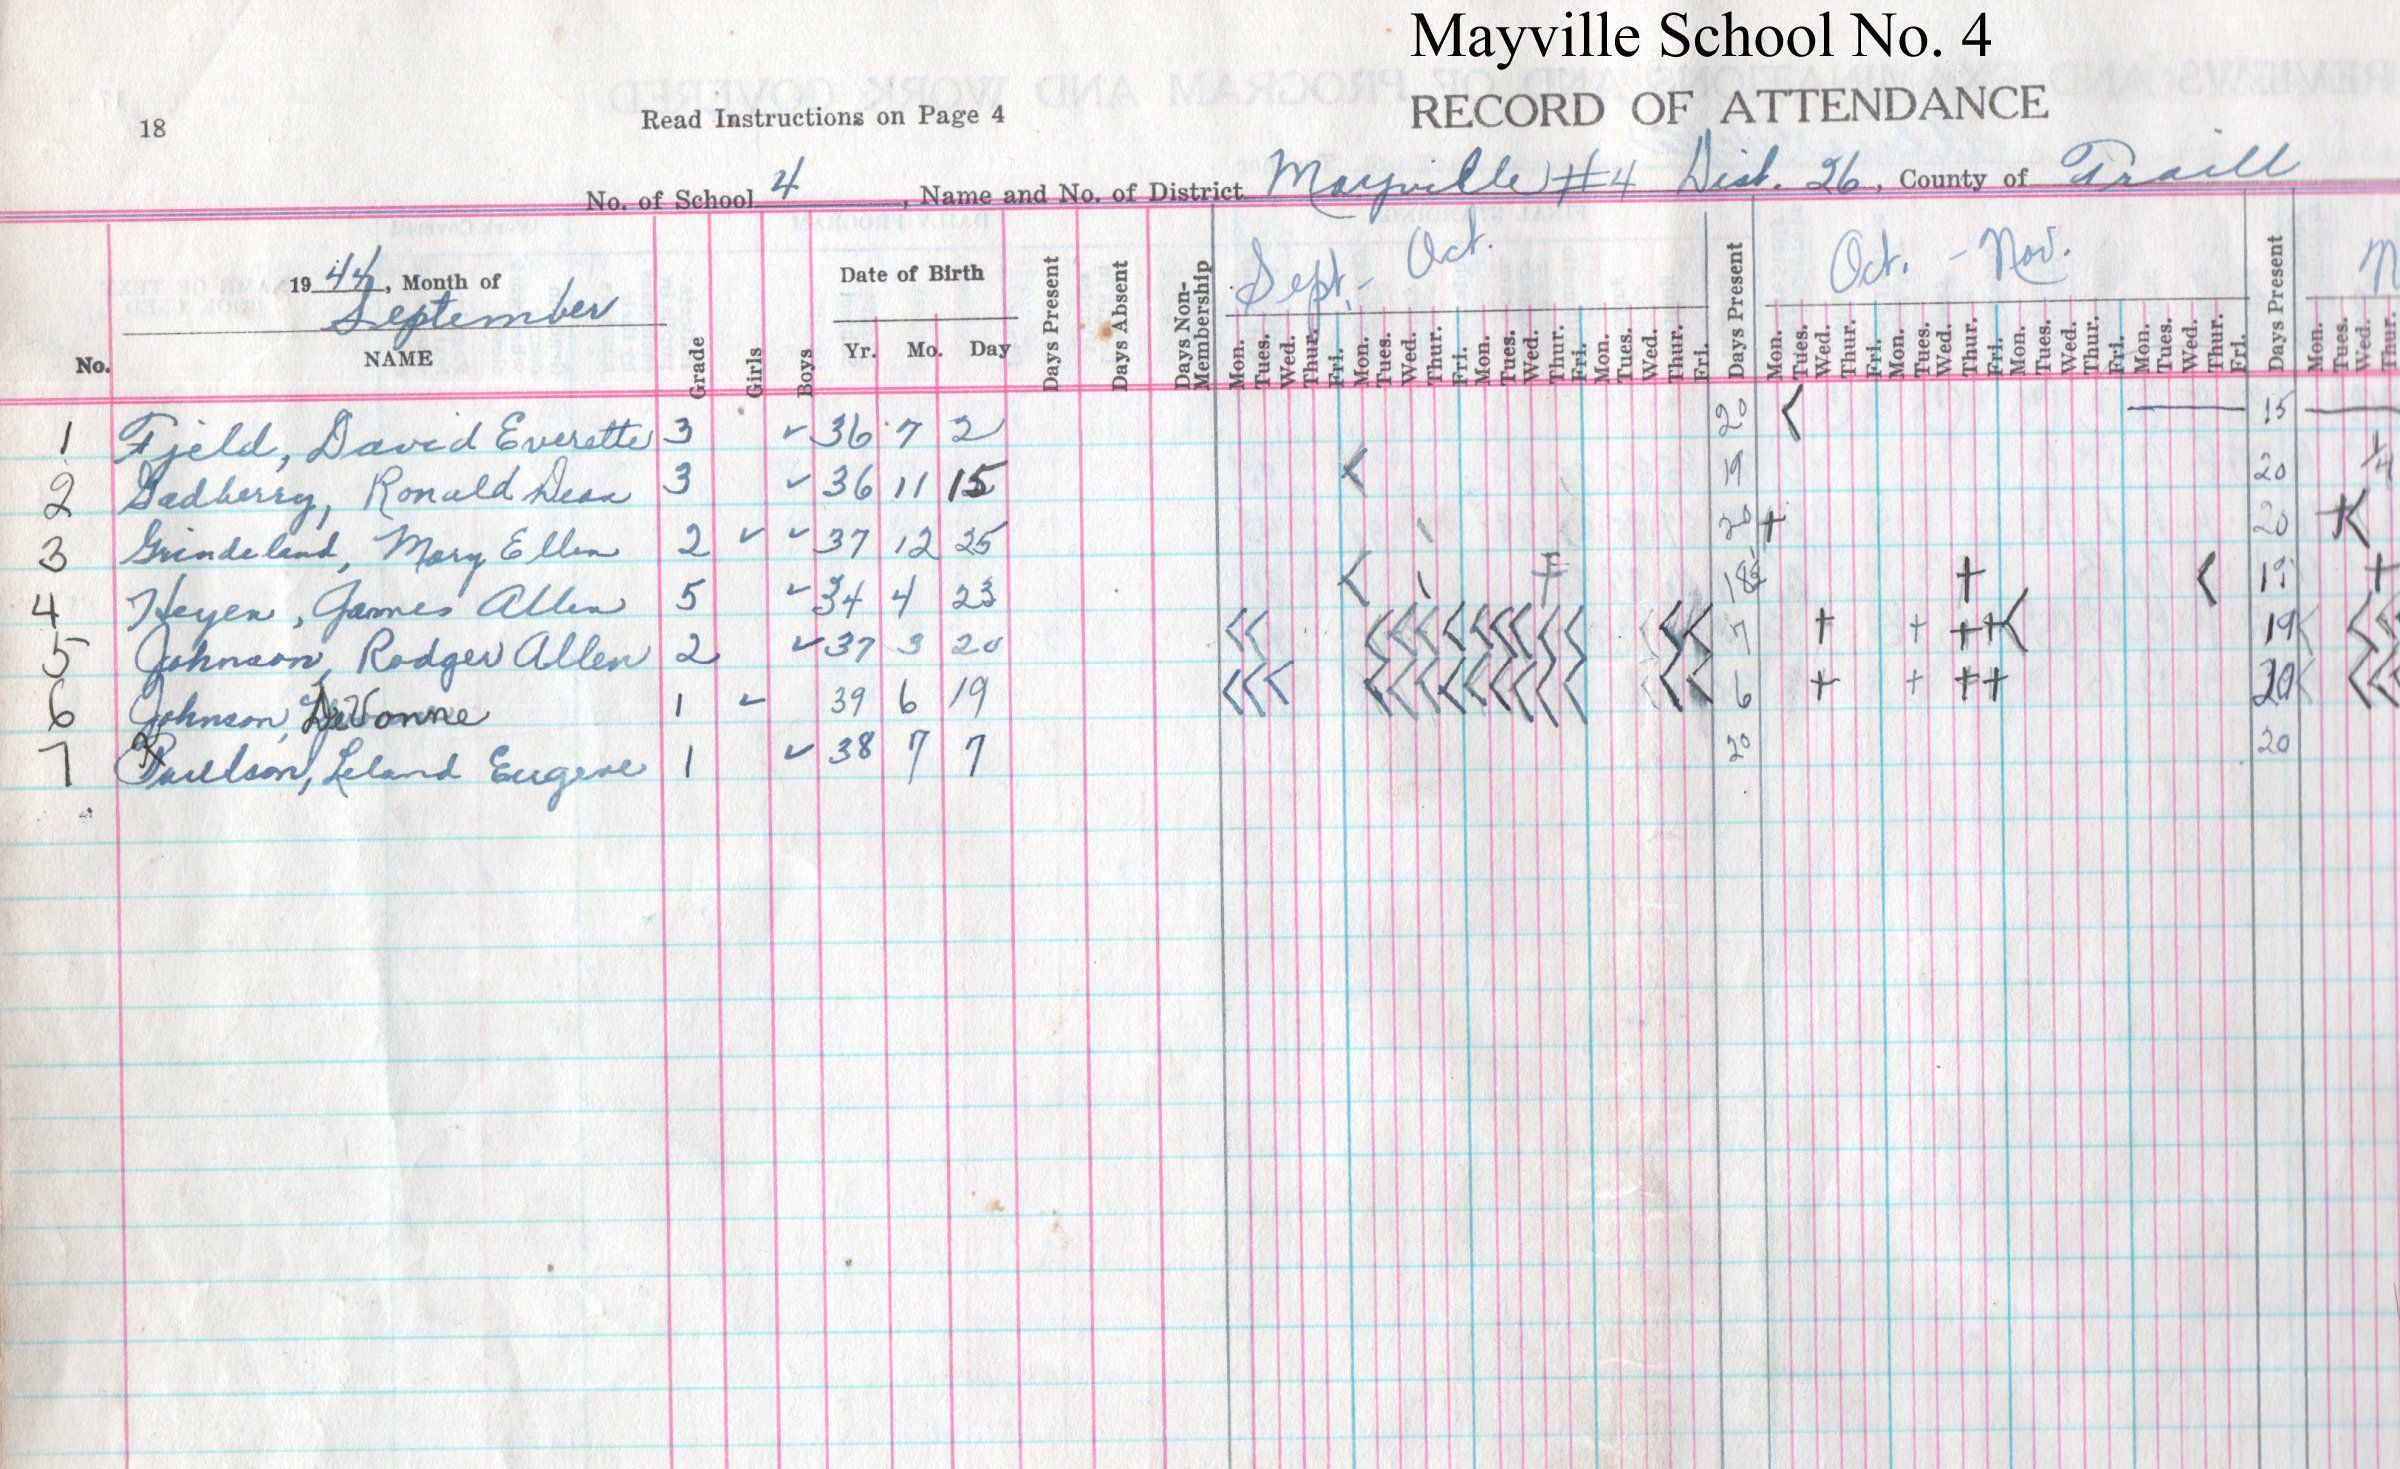 Mayville School No. 4
18 Read Instructions on Page 4 RECORD OF ATTENDANCE
No. of School 4, Name and No. of District Mayville #4 Dist. 26, County of Traill
1944, Month of September
Sept. - Oct.
Oct. - Nov.
N
Date of Birth
No. NAME Grade Girls Boys Yr. Mo. Day Days Present Days Absent Days Non-Membership Mon. Tues. Wed. Thur. Fri. Mon. Tues. Wed. Thur. Fri. Mon. Tues. Wed. Thur. Fri. Mon. Tues. Wed. Thur. Fri. Days Present Mon. Tues. Wed. Thur. Fri. Mon. Tues. Wed. Thur. Fri. Mon. Tues. Wed. Thur. Fri. Mon. Tues. Wed. Thur. Fri. Days Present Mon. Tues. Wed. Thur.
1 Fjeld, David Everette 3 ✓ 36 7 2 20 15
2 Gadberry, Ronald Dean 3 ✓ 36 11 15 19 20 1/4
3 Grindeland, Mary Ellen 2 ✓ ✓ 37 12 25 20 + 20
4 Heyen, James Allen 5 ✓ 34 4 23 18½ + 19 +
5 Johnson, Rodger Allen 2 ✓ 37 3 20 7 + + + + 19
6 Johnson, DeVonne 1 ✓ 39 6 19 6 + + + + 20
7 Paulson, Leland Eugene 1 ✓ 38 7 7 20 20